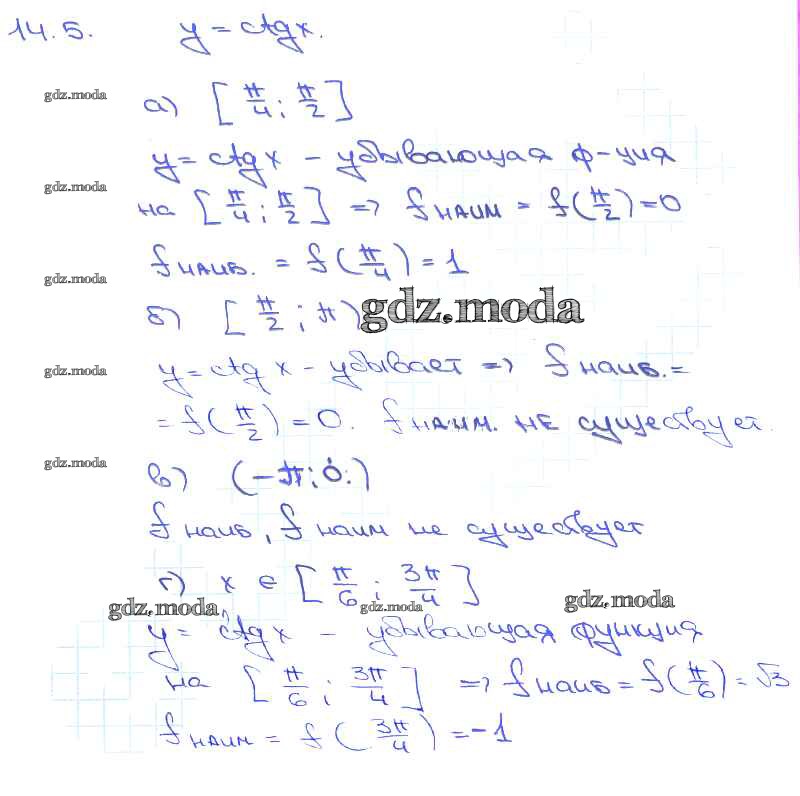 14.5. y = ctgx.
gdz.moda
а) [π/4; π/2]
y = ctg x – убывающая ф-ция
gdz.moda
на [π/4; π/2] => f наим = f(π/2) = 0
f наиб. = f(π/4) = 1
gdz.moda
б) [π/2; π)
gdz.moda
y = ctg x – убывает => f наиб. =
gdz.moda
= f(π/2) = 0. f наим. не существует.
gdz.moda
в) (-π; 0.)
f наиб, f наим не существует
г) x ∈ [π/6; 3π/4]
gdz.moda gdz.moda gdz.moda
y = ctg x – убывающая функция
на [π/6; 3π/4] => f наиб = f(π/6) = √3
f наим = f(3π/4) = -1